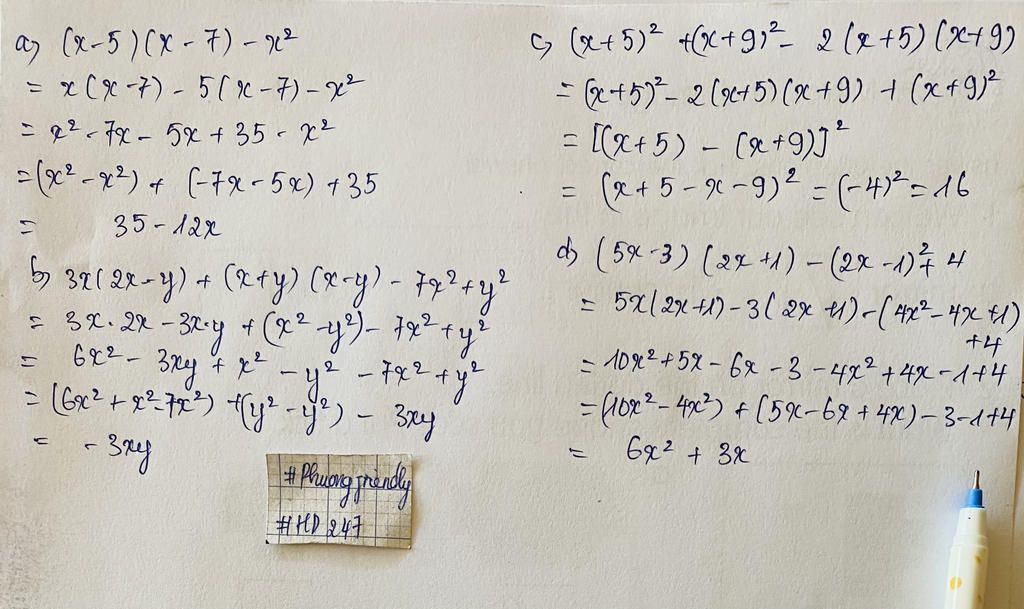 a) (x-5)(x-7)-x²
= x(x-7)-5(x-7)-x²
= x²-7x-5x+35-x²
=(x²-x²)+(-7x-5x)+35
= 35-12x
b) 3x(2x-y)+(x+y)(x-y)-7x²+y²
= 3x.2x-3x.y+(x²-y²)-7x²+y²
= 6x²-3xy+x²-y²-7x²+y²
=(6x²+x²-7x²)+(y²-y²)-3xy
= -3xy
#Phuongfriendly
#HD247
c) (x+5)²+(x+9)²-2(x+5)(x+9)
=(x+5)²-2(x+5)(x+9)+(x+9)²
=[(x+5)-(x+9)]²
= (x+5-x-9)²=(-4)²=16
d) (5x-3)(2x+1)-(2x-1)²+4
= 5x(2x+1)-3(2x+1)-(4x²-4x+1)
+4
=10x²+5x-6x-3-4x²+4x-1+4
=(10x²-4x²)+(5x-6x+4x)-3-1+4
= 6x²+3x